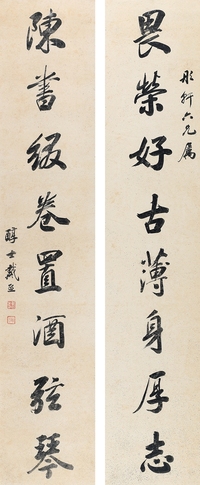 彤軒六兄屬
畏榮好古薄身厚志
陳書綴卷置酒弦琴
醇士戴熙